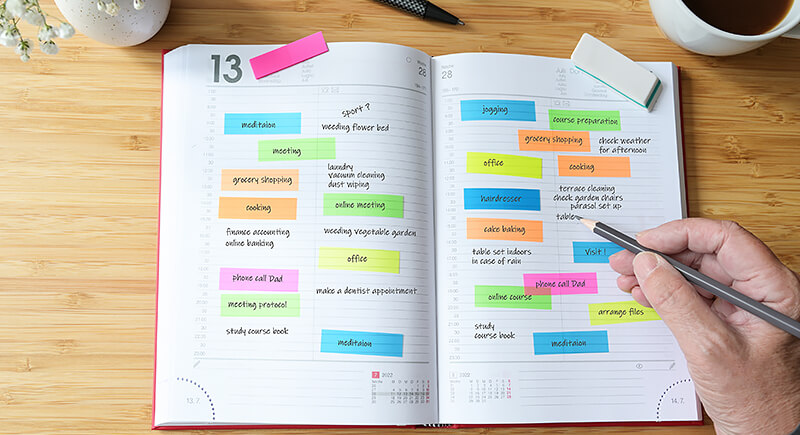 13
28
28
sport ?
meditaion
weeding flower bed
meeting
laundry
vacuum cleaning
dust wiping
grocery shopping
online meeting
cooking
finance accounting
online banking
weeding vegetable garden
office
phone call Dad
make a dentist appointment
meeting protocol
study course book
meditaion
7 2022
13.7.
jogging
course preparation
grocery shopping
check weather
for afternoon
office
cooking
terrace cleaning
check garden chairs
parasol set up
table
hairdresser
cake baking
table set indoors
in case of rain
Visit !
phone call Dad
online course
arrange files
study
course book
meditaion
2022
14.7.